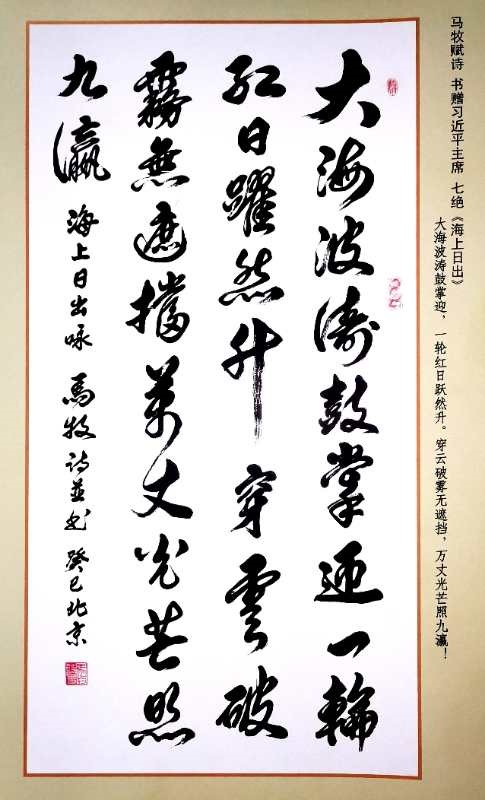 马牧赋诗 书赠习近平主席 七绝《海上日出》
大海波涛鼓掌迎，一轮红日跃然升。穿云破雾无遮挡，万丈光芒照九瀛！
大海波濤鼓掌迎一輪
红日躍然升穿雲破
霧無遮擋万丈光芒照
九瀛
海上日出咏 馬牧诗並书 癸巳北京